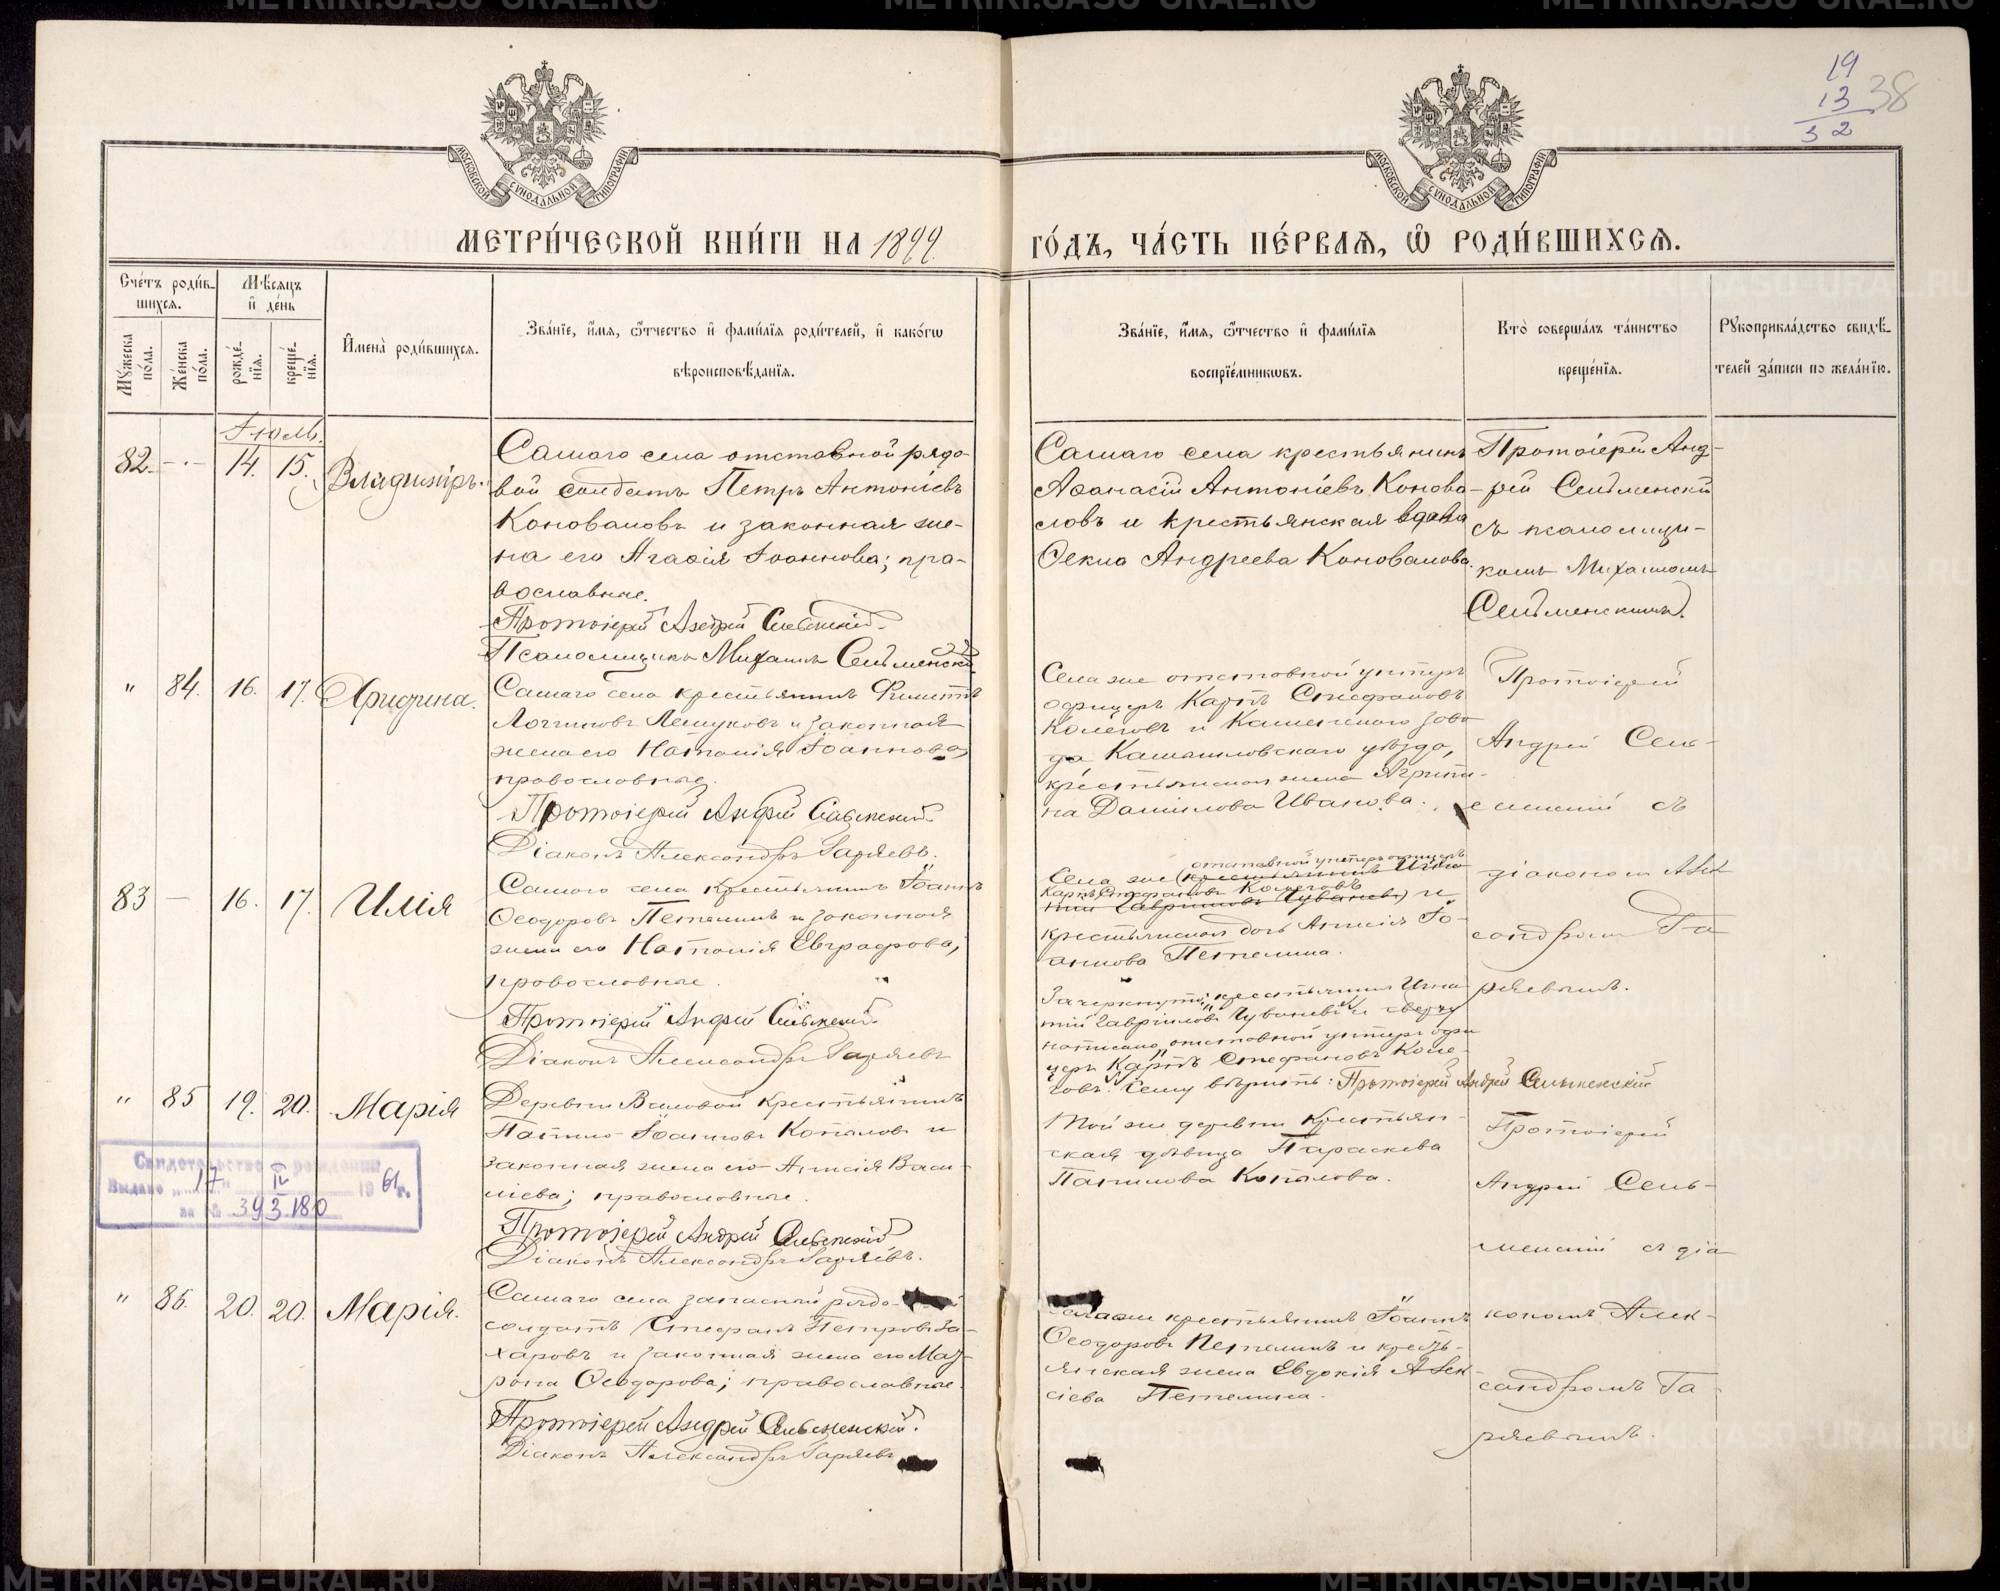 19
13
32
38
МОСКОВСКОЙ СУНОДАЛЬНОЙ ТИПОГРАФІИ
МОСКОВСКОЙ СУНОДАЛЬНОЙ ТИПОГРАФІИ
МЕТРИ́ЧЕСКОЙ КНИ́ГИ НА 1899
ГО́ДЪ, ЧА́СТЬ ПЕ́РВАѦ, Ѡ҆ РОДИ́ВШИХСѦ.
Сче́тъ роди́в-
шихсѧ.
Мѣ́сѧцъ
и҆ де́нь
Мꙋ́жеска по́ла.
Же́нска по́ла.
рожде́-нїѧ.
креще́-нїѧ.
И҆мена̀ роди́вшихсѧ.
Зва́нїе, и҆́мѧ, ѻ҆́тчество и҆ фами́лїѧ роди́телей, и҆ како́гѡ
вѣроисповѣ́данїѧ.
Зва́нїе, и҆́мѧ, ѻ҆́тчество и҆ фами́лїѧ
воспрїе́мникѡвъ.
Кто̀ соверша́лъ та́инство
креще́нїѧ.
Рꙋкоприкла́дство свидѣ́-
телей за́писи по жела́нїю.
Іюль.
82. - 14. 15. Владиміръ.
Самаго села отставной рядо-
вой солдатъ Петръ Антоніевъ
Коноваловъ и законная же-
на его Агаѳія Іоаннова; пра-
вославные.
Протоіерей Андрей Сельменскій.
Псаломщикъ Михаилъ Сельменскій
Самаго села крестьянинъ
Аѳанасій Антоніевъ Конова-
ловъ и крестьянская вдова
Ѳекла Андреева Коновалова.
Протоіерей Анд-
рей Сельменскій
съ псаломщи-
комъ Михаиломъ
Сельменскимъ.
" 84. 16. 17. Агрифина.
Самаго села крестьянинъ
Логгиновъ Лещуковъ и законная
жена его Наталія Іоаннова,
православные.
Протоіерей Андрей Сельменскій.
Діаконъ Александръ Гаряевъ.
Села же отставной унтеръ
офицеръ Карпъ Стефановъ
Колеговъ и Каменскаго заво-
да, Камышловскаго уѣзда,
крестьянская жена Агрипи-
на Данилова Иванова.
Протоіерей
Андрей Сель-
менскій съ
діакономъ Алек
сандромъ Га
ряевымъ.
83 - 16. 17. Илія
Самаго села крестьянинъ Іоаннъ
Ѳеодоровъ Петелинъ и законная
жена его Наталія Евграфова;
православные.
Протоіерей Андрей Сельменскій.
Діаконъ Александръ Гаряевъ
отставной унтеръ офицеръ
Села же (крестьянинъ Игна
Карпъ Стефановъ Колеговъ
тій Гавріиловъ Чуваевъ) и
крестьянская дочь Анисія Іо-
аннова Петелина.
Зачеркнуто: крестьянинъ Игна
тій Гавріиловъ Чуваевъ и сверху
написано отставной унтеръ офи
церъ Карпъ Стефановъ Коле-
говъ. Сему вѣрить: Протоіерей Андрей Сельменскій
" 85 19. 20. Марія
Деревни Валовой крестьянинъ
Іоанновъ Копыловъ и
законная жена его Анисія Васи-
ліева; православные.
Протоіерей Андрей Сельменскій
Діаконъ Александръ Гаряевъ.
Той же деревни крестьян-
ская дѣвица Параскева
Копылова.
Протоіерей
Андрей Сель-
менскій съ діа
кономъ Алек-
сандромъ Га-
ряевымъ.
Свидетельство о рождении
Выдано „17" IV 1961 г.
за № 393180
" 86. 20. 20. Марія.
Самаго села запасный рядо-
солдатъ Стефанъ Петровъ За-
харовъ и законная жена его Мат-
рона Ѳеодорова; православные.
Протоіерей Андрей Сельменскій.
Діаконъ Александръ Гаряевъ
Села же крестьянинъ Іоаннъ
Ѳеодоровъ Петелинъ и кресть-
янская жена Евдокія Алек-
сіева Петелина.
METRIKI.GASO-URAL.RU